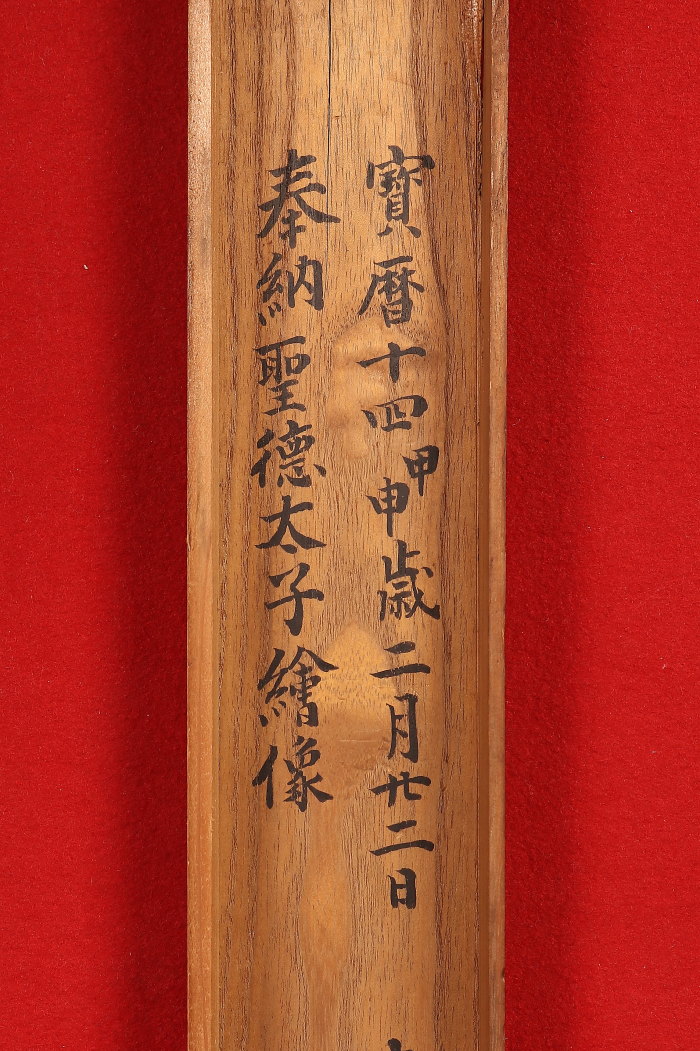 寶暦十四甲申歳二月廿二日
奉納聖德太子繪像